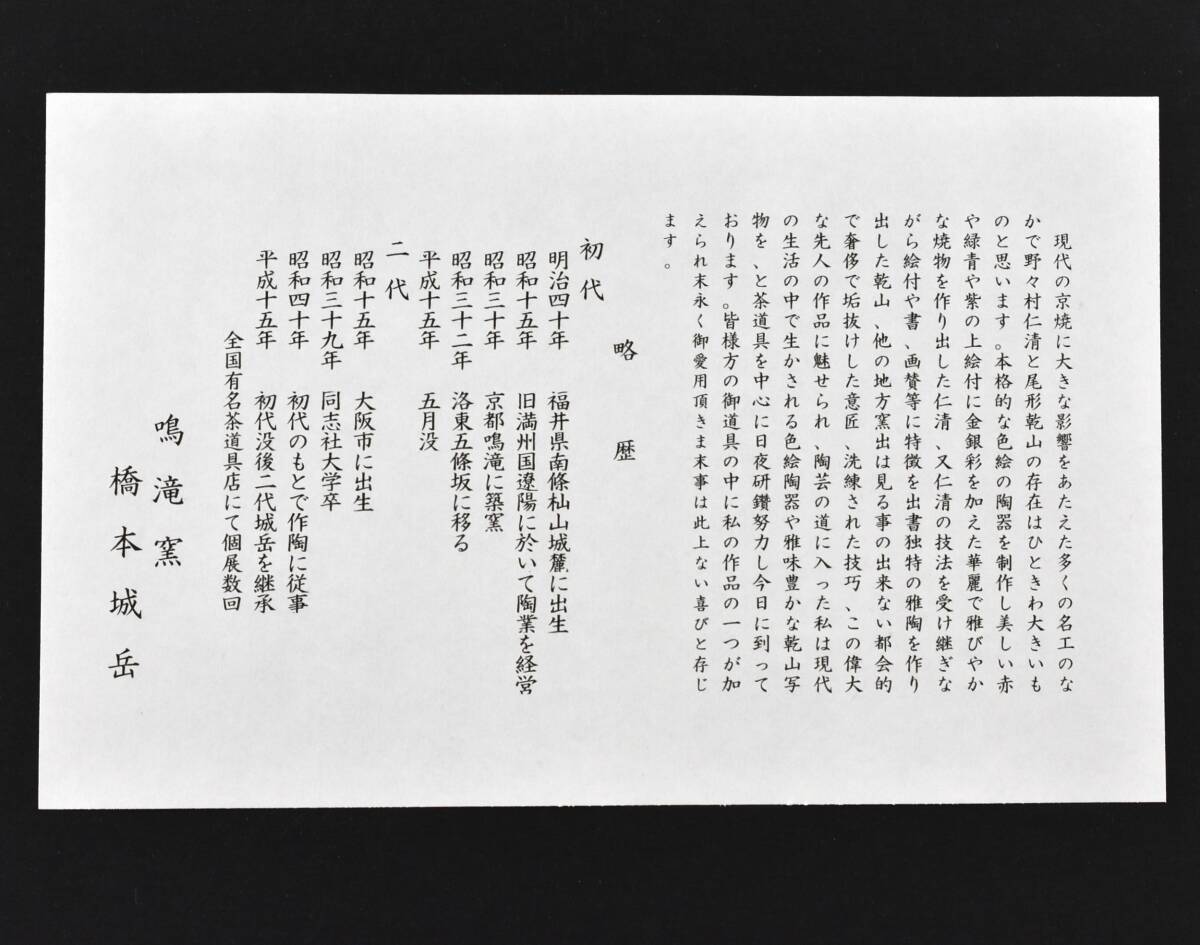 現代の京焼に大きな影響をあたえた多くの名工のな
かで野々村仁清と尾形乾山の存在はひときわ大きいも
のと思います。本格的な色絵の陶器を制作し美しい赤
や緑青や紫の上絵付に金銀彩を加えた華麗で雅びやか
な焼物を作り出した仁清、又仁清の技法を受け継ぎな
がら絵付や書、画賛等に特徴を出書独特の雅陶を作り
出した乾山、他の地方窯出は見る事の出来ない都会的
で奢侈で垢抜けした意匠、洗練された技巧、この偉大
な先人の作品に魅せられ、陶芸の道に入った私は現代
の生活の中で生かされる色絵陶器や雅味豊かな乾山写
物を、と茶道具を中心に日夜研鑽努力し今日に到って
おります。皆様方の御道具の中に私の作品の一つが加
えられ末永く御愛用頂きま末事は此上ない喜びと存じ
ます。
略歴
初代
明治四十年 福井県南條杣山城麓に出生
昭和十五年 旧満州国遼陽に於いて陶業を経営
昭和三十年 京都鳴滝に築窯
昭和三十二年 洛東五條坂に移る
平成十五年 五月没
二代
昭和十五年 大阪市に出生
昭和三十九年 同志社大学卒
昭和四十年 初代のもとで作陶に従事
平成十五年 初代没後二代城岳を継承
全国有名茶道具店にて個展数回
鳴滝窯
橋本城岳